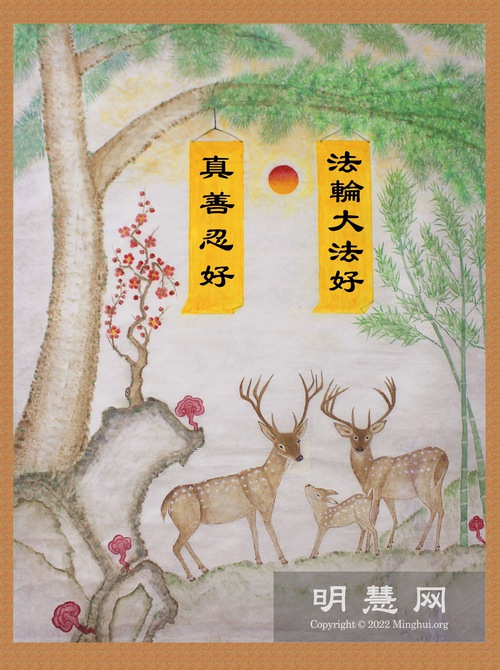 法輪大法好
真善忍好
明慧网
Copyright © 2022 Minghui.org